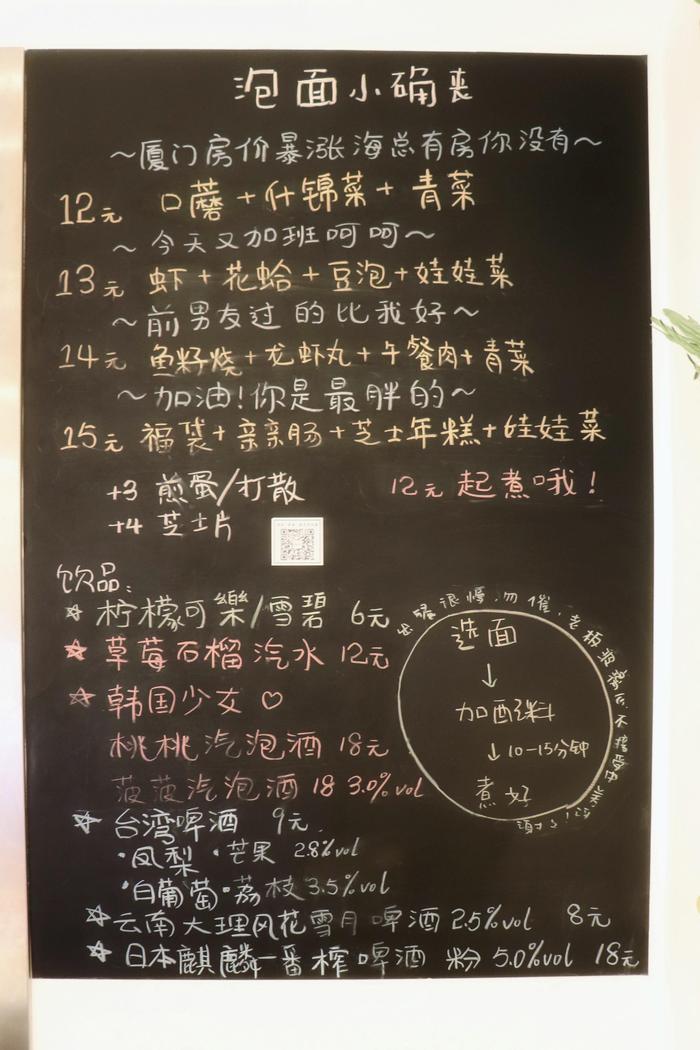 泡面小确丧
～厦门房价暴涨海总有房你没有～
12元 口蘑+什锦菜+青菜
～今天又加班呵呵～
13元 虾+花蛤+豆泡+娃娃菜
～前男友过的比我好～
14元 鱼籽烧+龙虾丸+午餐肉+青菜
～加油!你是最胖的～
15元 福袋+亲亲肠+芝士年糕+娃娃菜
+3 煎蛋/打散
12元起煮哦!
+4 芝士片
饮品:
☆ 柠檬可樂/雪碧 6元
☆ 草莓石榴汽水 12元
☆ 韩国少女 ♡
桃桃汽泡酒 18元
菠菠汽泡酒 18 3.0%vol
☆ 台湾啤酒 9元.
·凤梨 ·芒果 2.8%vol
·白葡萄·荔枝 3.5%vol
☆ 云南大理风花雪月啤酒 2.5%vol 8元
☆ 日本麒麟一番榨啤酒 粉 5.0%vol 18元
很慢勿催,老板
选面
↓
加配料
↓ 10-15分钟
煮好